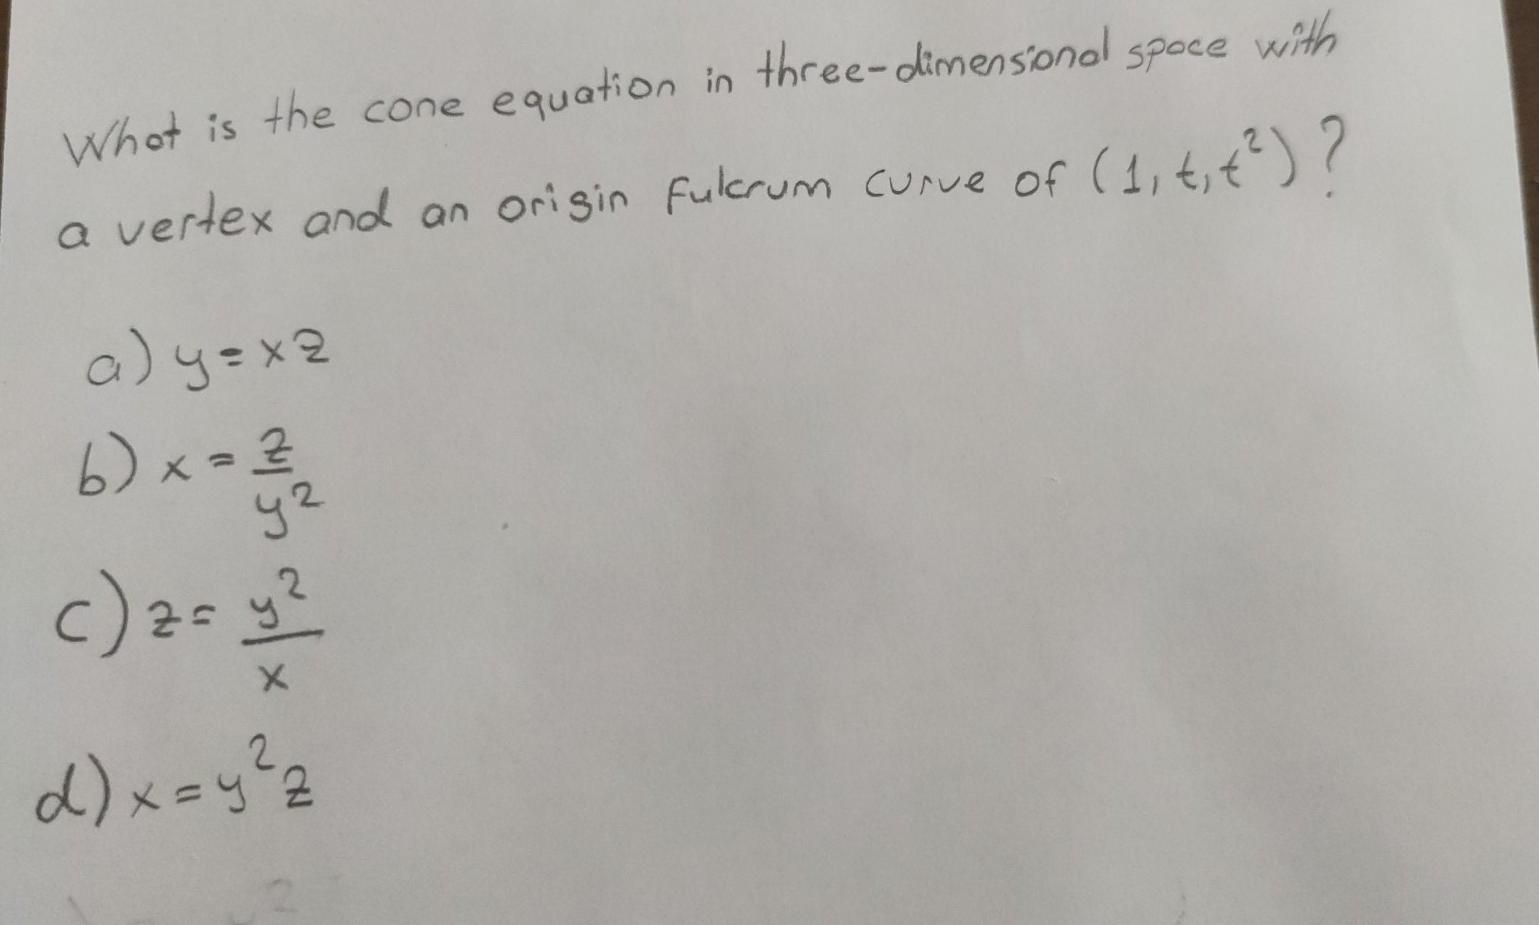 What is the cone equation in three-dimensional space with
a vertex and an origin fulcrum curve of (1, t, t²) ?
a) y = xz
b) x = z/y²
c) z = y²/x
d) x = y²z